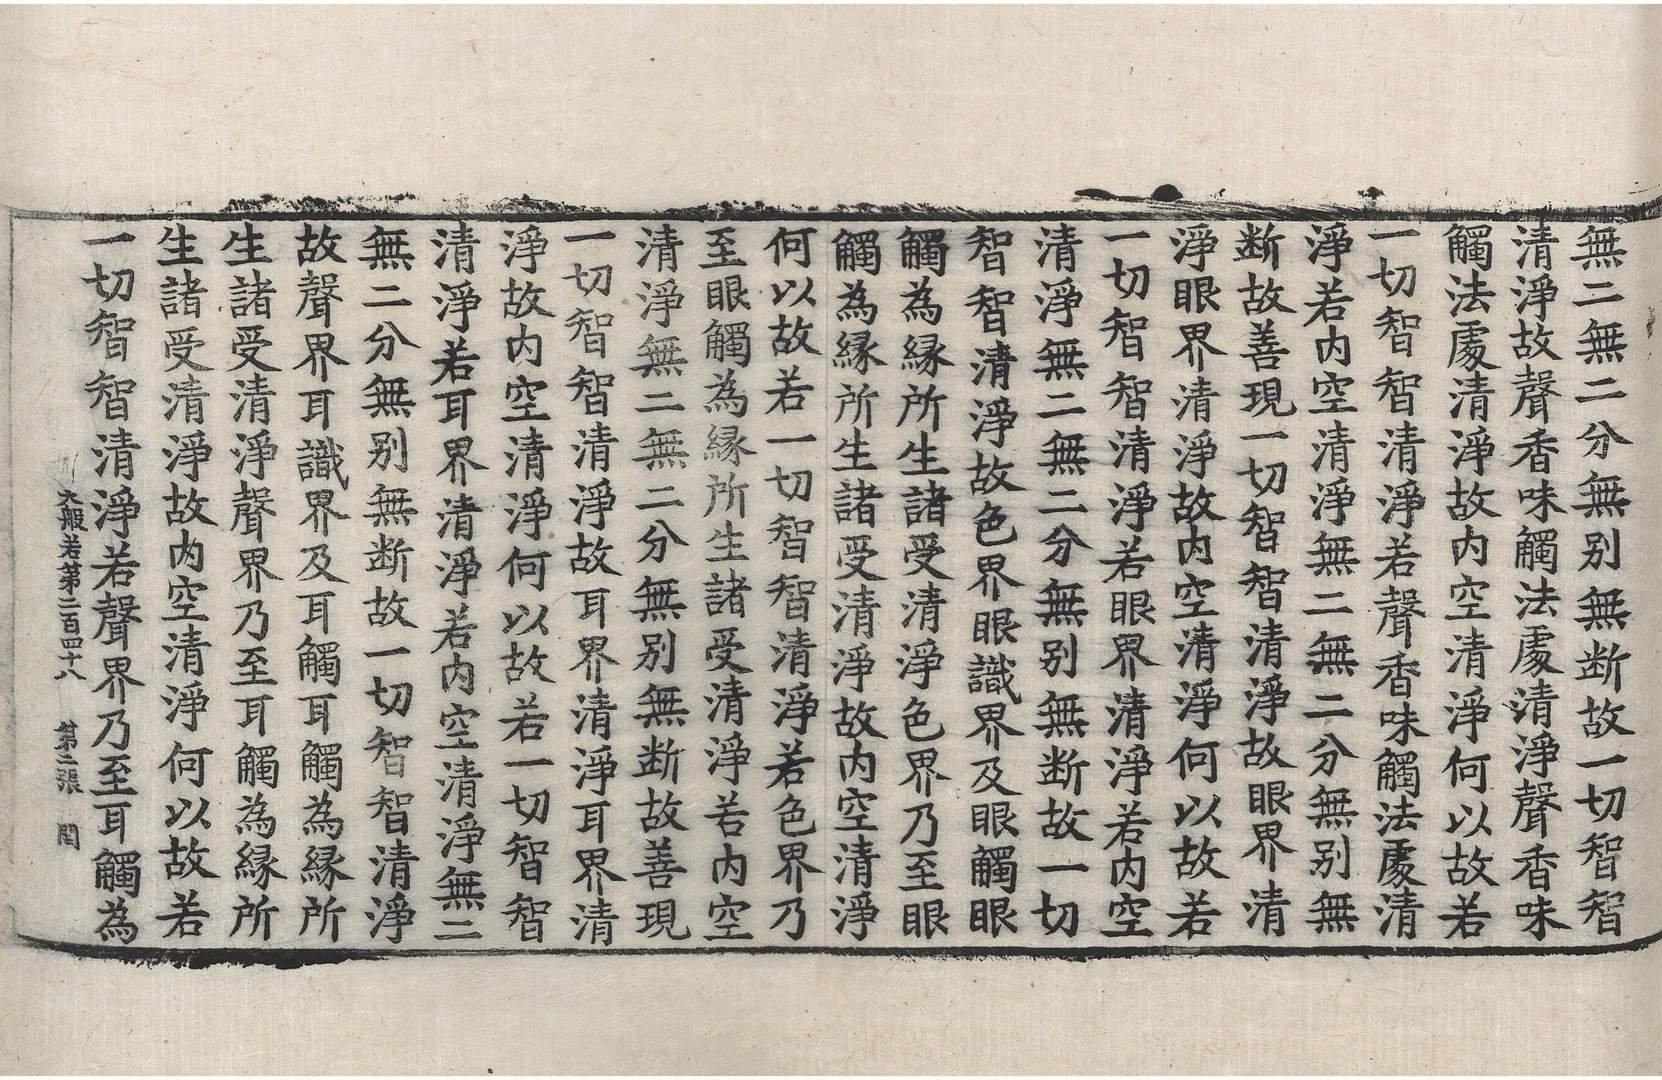 無二無二分無别無断故一切智智
清淨故聲香味觸法處清淨聲香味
觸法處清淨故内空清淨何以故若
一切智智清淨若聲香味觸法處清
淨若内空清淨無二無二分無别無
断故善現一切智智清淨故眼界清
淨眼界清淨故内空清淨何以故若
一切智智清淨若眼界清淨若内空
清淨無二無二分無别無断故一切
智智清淨故色界眼識界及眼觸眼
觸為縁所生諸受清淨色界乃至眼
觸為縁所生諸受清淨故内空清淨
何以故若一切智智清淨若色界乃
至眼觸為縁所生諸受清淨若内空
清淨無二無二分無别無断故善現
一切智智清淨故耳界清淨耳界清
淨故内空清淨何以故若一切智智
清淨若耳界清淨若内空清淨無二
無二分無别無断故一切智智清淨
故聲界耳識界及耳觸耳觸為縁所
生諸受清淨聲界乃至耳觸為縁所
生諸受清淨故内空清淨何以故若
一切智智清淨若聲界乃至耳觸為
大般若第二百四十八 第二張 閏